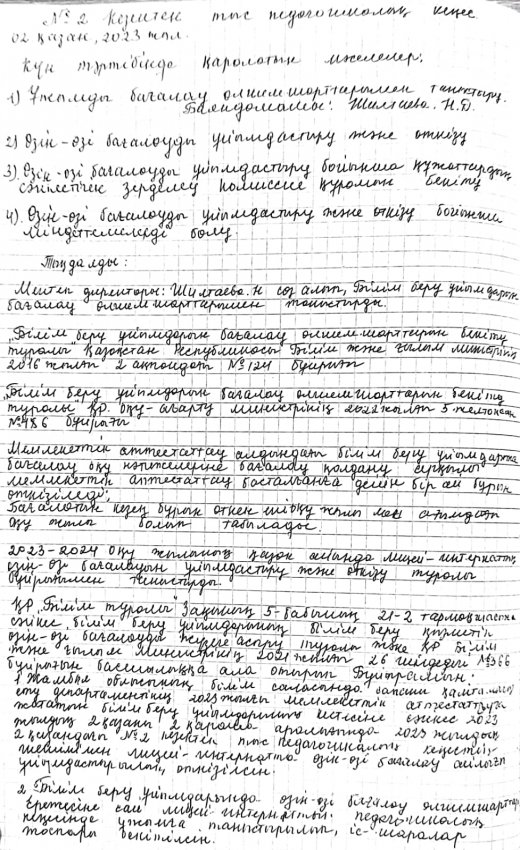 № 2 кезектен тыс педагогикалық кеңес
02 қазан, 2023 жыл.
Күн тәртібінде қаралатын мәселелер:
1) Ұжымды бағалау өлшемшарттарымен таныстыру.
Баяндамашы: Шилтаева. Н.Д.
2) Өзін-өзі бағалауды ұйымдастыру және өткізу
3) Өзін-өзі бағалауды ұйымдастыру бойынша құжаттардың
сәйкестігін зерделеу комиссия құрамын бекіту
4). Өзін-өзі бағалауды ұйымдастыру және өткізу бойынша
міндеттемелерді бөлу.
Тыңдалды:
Мектеп директоры: Шилтаева. Н сөз алып, Білім беру ұйымдарын
бағалау өлшемшарттарымен таныстырды.
„Білім беру ұйымдарын бағалау өлшемшарттарын бекіту
туралы Қазақстан Республикасы Білім және ғылым министрінің
2016 жылғы 2 ақпандағы №124 бұйрығы
„Білім беру ұйымдарын бағалау өлшемшарттарын бекіту
туралы ҚР. оқу-ағарту министрінің 2022 жылғы 5 желтоқсан
№486 бұйрығы
Мемлекеттік аттестаттау алдындағы білім беру ұйымдарына
бағалау оқу нәтижелеріне бағалау қолдану арқылы
мемлекеттік аттестаттау басталғанға дейін бір ай бұрын
өткізіледі;
Бағаланатын кезең бұрын өткен оқу жылы мен ағымдағы
оқу жылы болып табылады.
2023-2024 оқу жылының қазан айында лицей-интернаттың
өзін-өзі бағалауын ұйымдастыру және өткізу туралы
бұйрығымен таныстырды.
ҚР „Білім туралы" Заңының 5-бабының 21-2 тармақшасына
сәйкес білім беру ұйымдарының білім беру қызметін
өзін-өзі бағалауды жүзеге асыру туралы және ҚР Білім
және ғылым министрінің 2021 жылғы 26 шілдедегі №366
бұйрығын басшылыққа ала отырып Бұйырамын:
1 Жамбыл облысының білім саласында сапаны қамтамасыз
ету департаментінің 2023 жылғы мемлекеттік аттестаттауға
жататын білім беру ұйымдарының тізіміне сәйкес 2023
жылдың 2 қазаны 2 қараша аралығында 2023 жылдың
2 қазандағы №2 кезектен тыс педагогикалық кеңестің
шешімімен лицей-интернатта өзін-өзі бағалау айлығы
ұйымдастырылып, өткізілсін.
2 Білім беру ұйымдарында өзін-өзі бағалау өлшемшарттар
ережесіне сай лицей-интернаттың педагогикалық
кеңесінде ұжымға таныстырылып, іс-шаралар
жоспары бекітілсін.